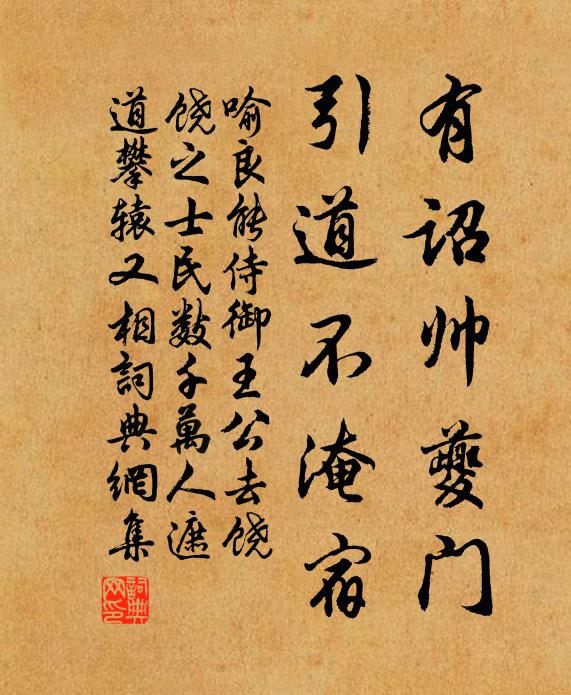 有诏帅夔门
引道不淹宿
喻良能侍御王公去饶
饶之士民数千萬人遮
道攀辕又相詞典網集
詞典网印